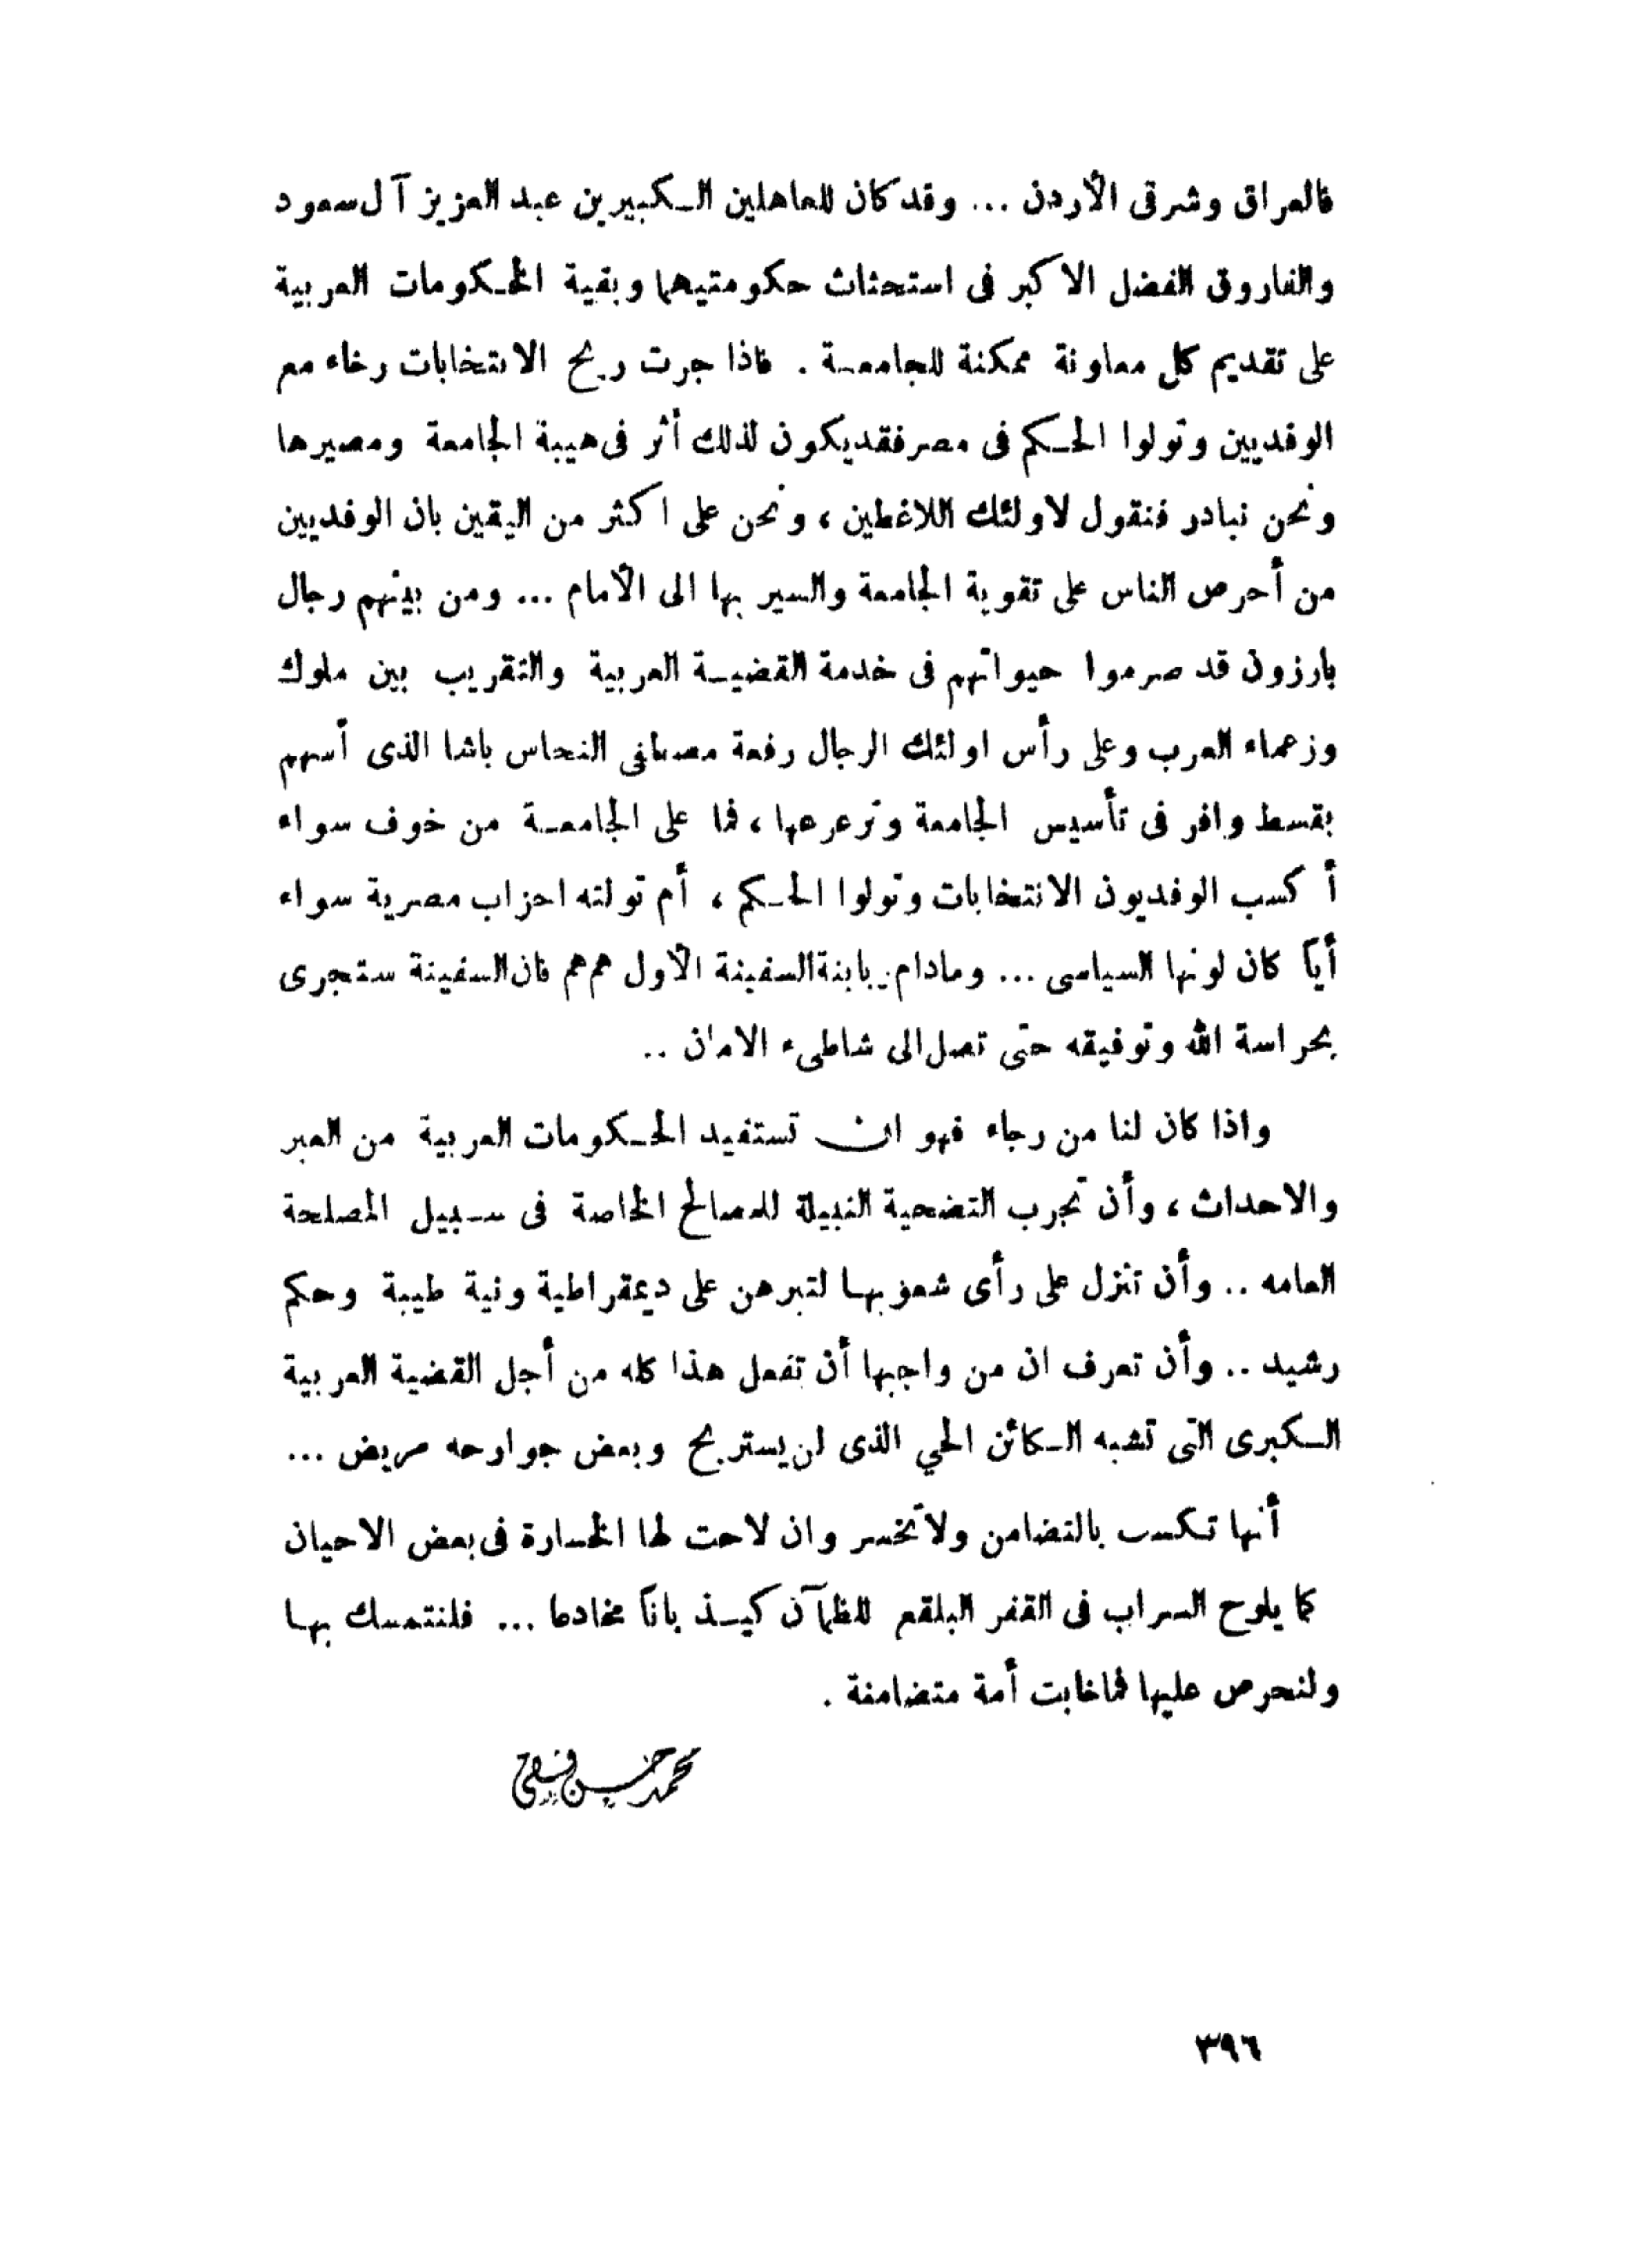 فالعراق وشرقى الأردن ... وقد كان للعاهلين الكبيرين عبد العزيز آل سعود
والفاروق الفضل الاكبر فى استحثاث حكومتيهما وبقية الحكومات العربية
على تقديم كل معاونة ممكنة للجامعة . فاذا جرت ريح الانتخابات رخاء مع
الوفديين وتولوا الحكم فى مصر فقد يكون لذلك أثر فى هيبة الجامعة ومصيرها
ونحن نبادر فنقول لاولئك اللاغطين ، ونحن على اكثر من اليقين بان الوفديين
من أحرص الناس على تقوية الجامعة والسير بها الى الأمام ... ومن بينهم رجال
بارزون قد صرموا حيواتهم فى خدمة القضية العربية والتقريب بين ملوك
وزعماء العرب وعلى رأس اولئك الرجال رفعة مصطفى النحاس باشا الذى أسهم
بقسط وافر فى تأسيس الجامعة وترعرعها ، فما على الجامعة من خوف سواء
أ كسب الوفديون الانتخابات وتولوا الحكم ، أم تولته احزاب مصرية سواء
أياً كان لونها السياسى ... ومادام ربابنة السفينة الأول هم هم فان السفينة ستجرى
بحراسة الله وتوفيقه حتى تصل الى شاطىء الامان ..
واذا كان لنا من رجاء فهو ان تستفيد الحكومات العربية من العبر
والاحداث ، وأن تجرب التضحية النبيلة للمصالح الخاصة فى سبيل المصلحة
العامه .. وأن تنزل على رأى شعوبها لتبرهن على ديمقراطية ونية طيبة وحكم
رشيد .. وأن تعرف ان من واجبها أن تفعل هذا كله من أجل القضية العربية
الكبرى التى تشبه الكائن الحي الذى لن يستريح وبعض جوارحه مريض ...
أنها تكسب بالتضامن ولا تخسر وان لاحت لها الخسارة فى بعض الاحيان
كما يلوح السراب فى القفر البلقع للظمآن كيذباناً مخادعا ... فلنتمسك بها
ولنحرص عليها فما خابت أمة متضامنة .
محمد حسن فقي
٣٩٦